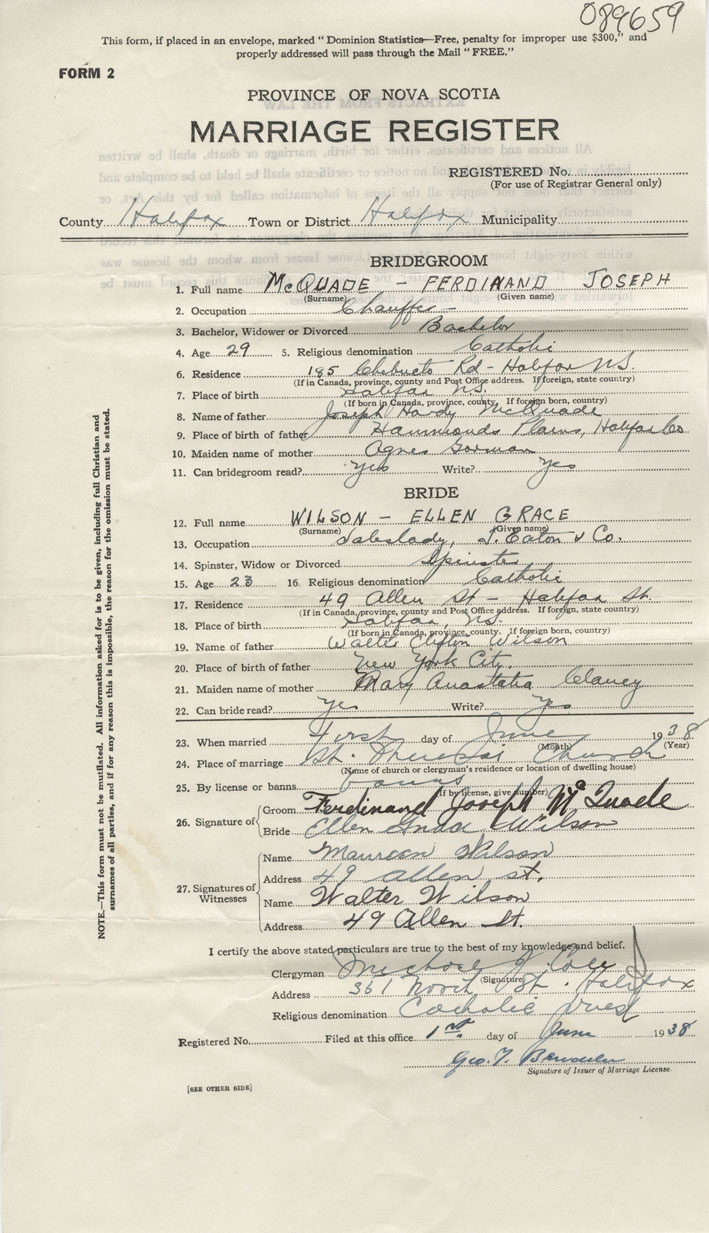 089659
This form, if placed in an envelope, marked "Dominion Statistics—Free, penalty for improper use $300," and
properly addressed will pass through the Mail "FREE."
FORM 2
PROVINCE OF NOVA SCOTIA
MARRIAGE REGISTER
REGISTERED No.
(For use of Registrar General only)
County Halifax Town or District Halifax Municipality
BRIDEGROOM
1. Full name McQUADE - FERDINAND JOSEPH
(Surname) (Given name)
2. Occupation Chauffer -
3. Bachelor, Widower or Divorced Bachelor
4. Age 29 5. Religious denomination Catholic
6. Residence 185 Chebucto Rd - Halifax N.S.
(If in Canada, province, county and Post Office address. If foreign, state country)
7. Place of birth Halifax N.S.
(If born in Canada, province, county. If foreign born, country)
8. Name of father Joseph Hardy McQuade
9. Place of birth of father Hammonds Plains, Halifax Co
10. Maiden name of mother Agnes Gorman
11. Can bridegroom read? yes Write? yes
BRIDE
12. Full name WILSON - ELLEN GRACE
(Surname) (Given name)
13. Occupation Saleslady, T. Eaton & Co.
14. Spinster, Widow or Divorced Spinster
15. Age 23 16. Religious denomination Catholic
17. Residence 49 Allen St - Halifax
(If in Canada, province, county and Post Office address. If foreign, state country)
18. Place of birth Halifax, N.S.
(If born in Canada, province, county. If foreign born, country)
19. Name of father Walter Wilson
20. Place of birth of father New York City.
21. Maiden name of mother Mary Anastatia Clancy
22. Can bride read? yes Write? yes
23. When married First day of June 1938
(Month) (Year)
24. Place of marriage St. Theresas Church
(Name of church or clergyman's residence or location of dwelling house)
25. By license or banns banns
(If by license, give number)
26. Signature of
Groom Ferdinand Joseph McQuade
Bride Ellen Grace Wilson
27. Signatures of Witnesses
Name Maureen Wilson
Address 49 Allen St.
Name Walter Wilson
Address 49 Allen St.
I certify the above stated particulars are true to the best of my knowledge and belief.
Clergyman Michael J. Cole
(Signature)
Address 361 North St. Halifax
Religious denomination Catholic Priest
Registered No. Filed at this office 1st day of June 1938
Geo. T.
Signature of Issuer of Marriage License.
[SEE OTHER SIDE]
NOTE.—This form must not be mutilated. All information asked for is to be given, including full Christian and
surnames of all parties, and if for any reason this is impossible, the reason for the omission must be stated.